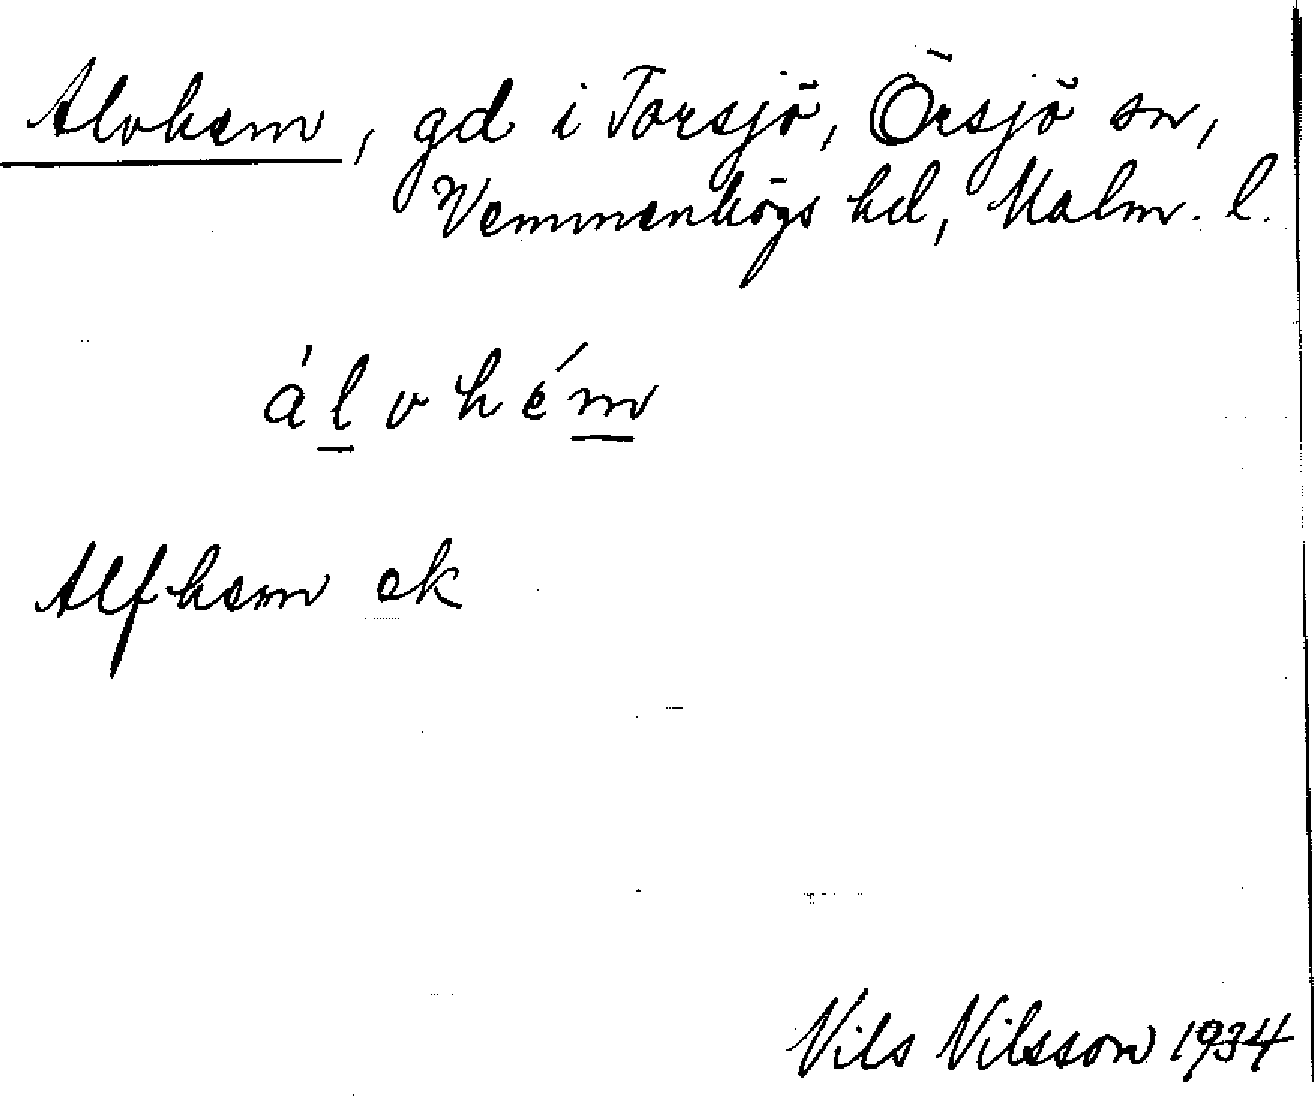 Alvhem, gd i Torsjö, Örsjö sn,
Vemmenhögs hd, Malm. l.
álvhém
Alfhem ek
Nils Nilsson 1934